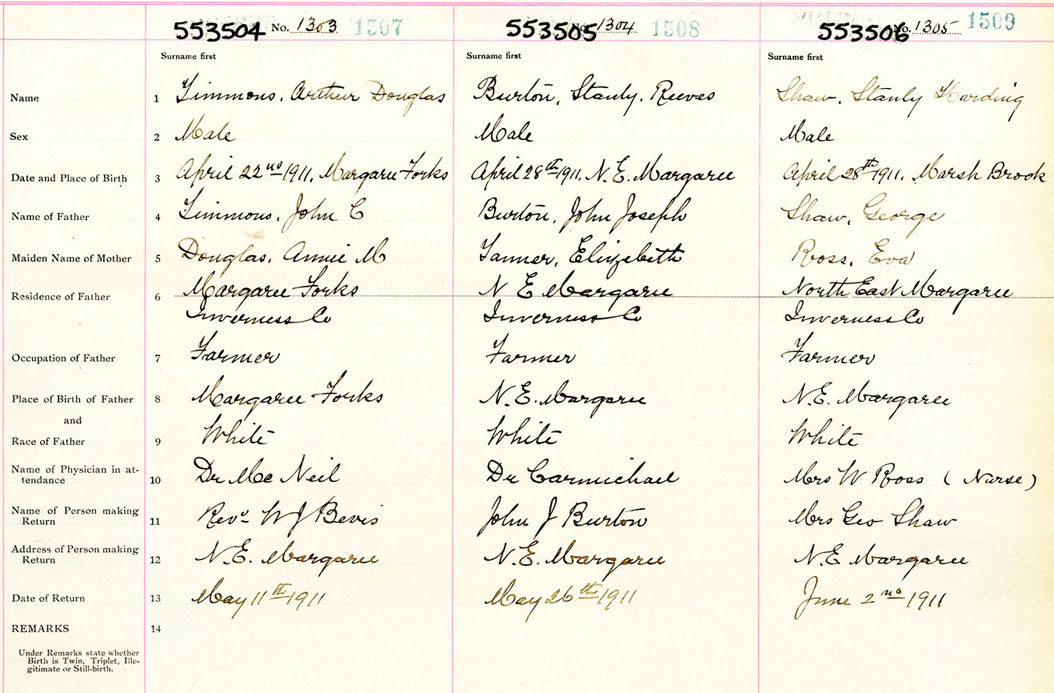 553504 No. 1303 1507 553505 No. 1304 1508 553506 No. 1305 1509
Surname first Surname first Surname first
Name 1 Timmons, Arthur Douglas Burton, Stanly, Reeves Shaw, Stanly Harding
Sex 2 Male Male Male
Date and Place of Birth 3 April 22nd 1911, Margaree Forks April 28th 1911, N.E. Margaree April 28th 1911, Marsh Brook
Name of Father 4 Timmons, John C Burton, John Joseph Shaw, George
Maiden Name of Mother 5 Douglas, Annie M Tanner, Elizebeth Ross, Eva
Residence of Father 6 Margaree Forks N E Margaree North East Margaree
Inverness Co Inverness Co Inverness Co
Occupation of Father 7 Farmer Farmer Farmer
Place of Birth of Father 8 Margaree Forks N.E. Margaree N.E. Margaree
and
Race of Father 9 White White White
Name of Physician in at-
tendance 10 Dr Mc Neil Dr Carmichael Mrs W Ross ( Nurse )
Name of Person making
Return 11 Revd W J Bevis John J Burton Mrs Geo Shaw
Address of Person making
Return 12 N.E. Margaree N.E. Margaree N.E. Margaree
Date of Return 13 May 11th 1911 May 26th 1911 June 2nd 1911
REMARKS 14
Under Remarks state whether
Birth is Twin, Triplet, Ille-
gitimate or Still-birth.